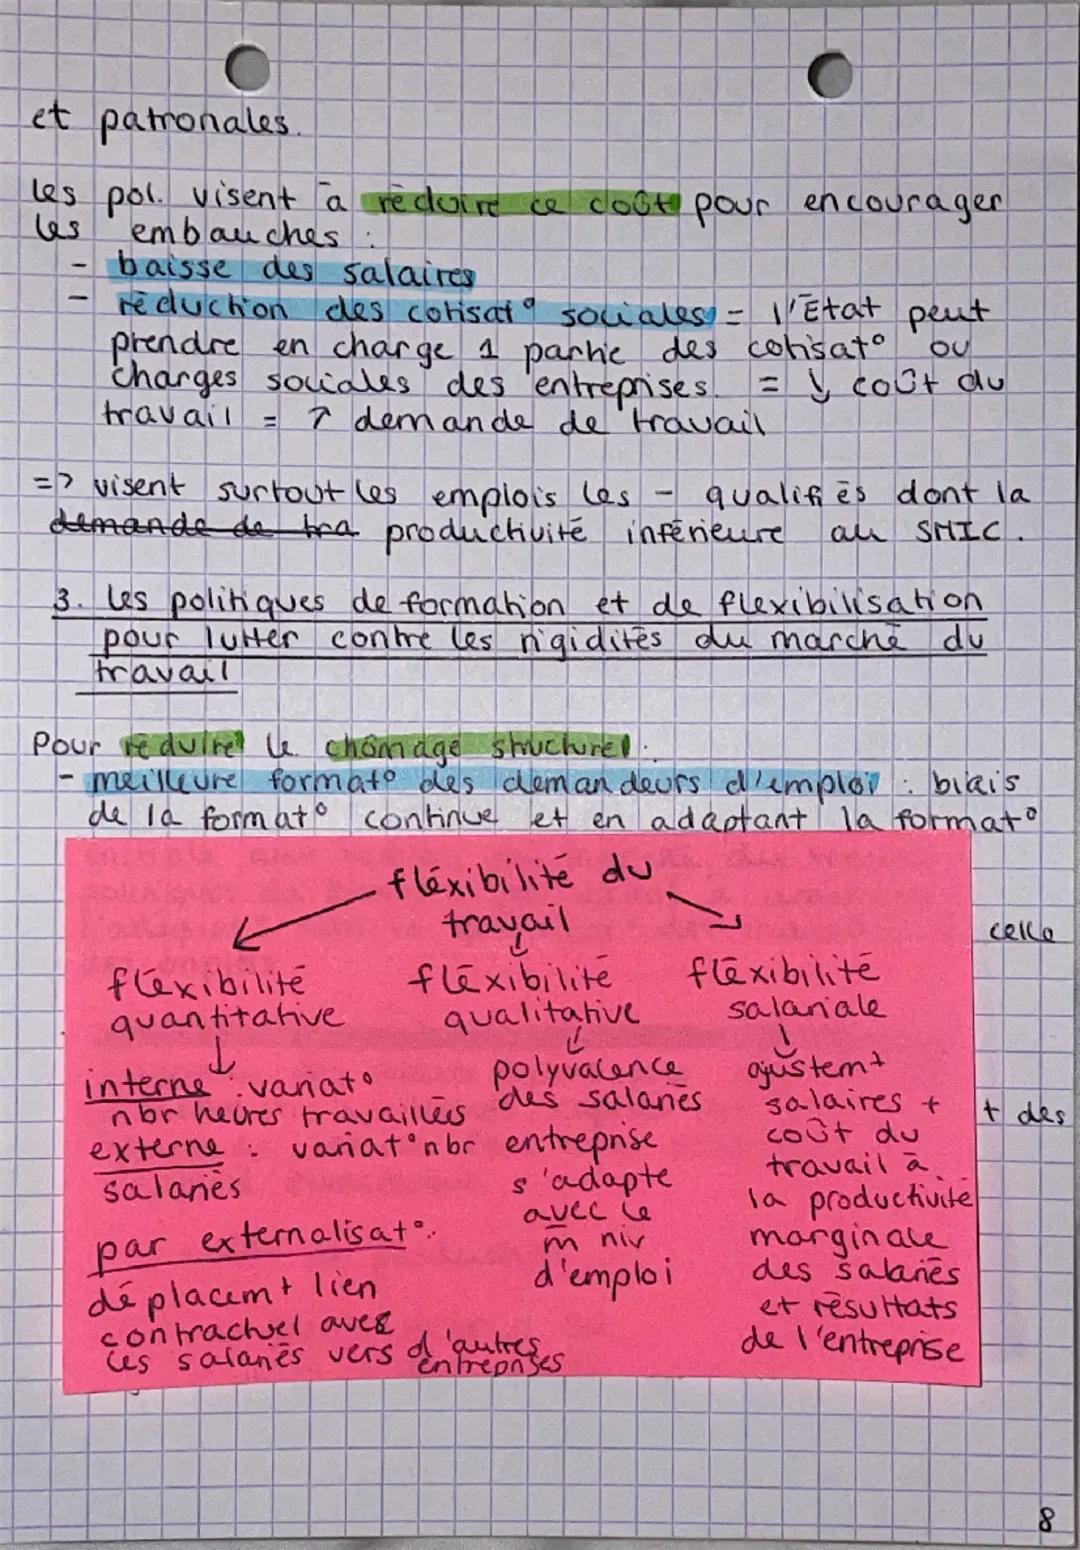 et patronales.
les pol. visent à réduire ce coût pour encourager
les embauches :
- baisse des salaires
- réduction des cotisat° sociales = l'État peut
prendre en charge 1 partie des cotisat° ou
charges sociales des entreprises. = ↓ coût du
travail = ↗ demande de travail
=> visent surtout les emplois les - qualifiés dont la
demande de tra productivité inférieure au SMIC.
3. les politiques de formation et de flexibilisation
pour lutter contre les rigidités du marché du
travail
Pour réduire le chômage structurel :
- meilleure format° des demandeurs d'emploi : biais
de la format° continue et en adaptant la format°
celle
+ des
fléxibilité du
travail
fléxibilité
quantitative
↓
interne : variat°
nbr heures travaillées
externe : variat° nbr
salariés
par externalisat° :
déplacemt lien
contractuel avec
les salariés vers d'autres
entreprises
fléxibilité
qualitative
↓
polyvalence
des salariés
entreprise
s'adapte
avec le
m̄ niv
d'emploi
fléxibilité
salariale
↓
ajustemt
salaires +
coût du
travail à
la productivité
marginale
des salariés
et résultats
de l'entreprise
8